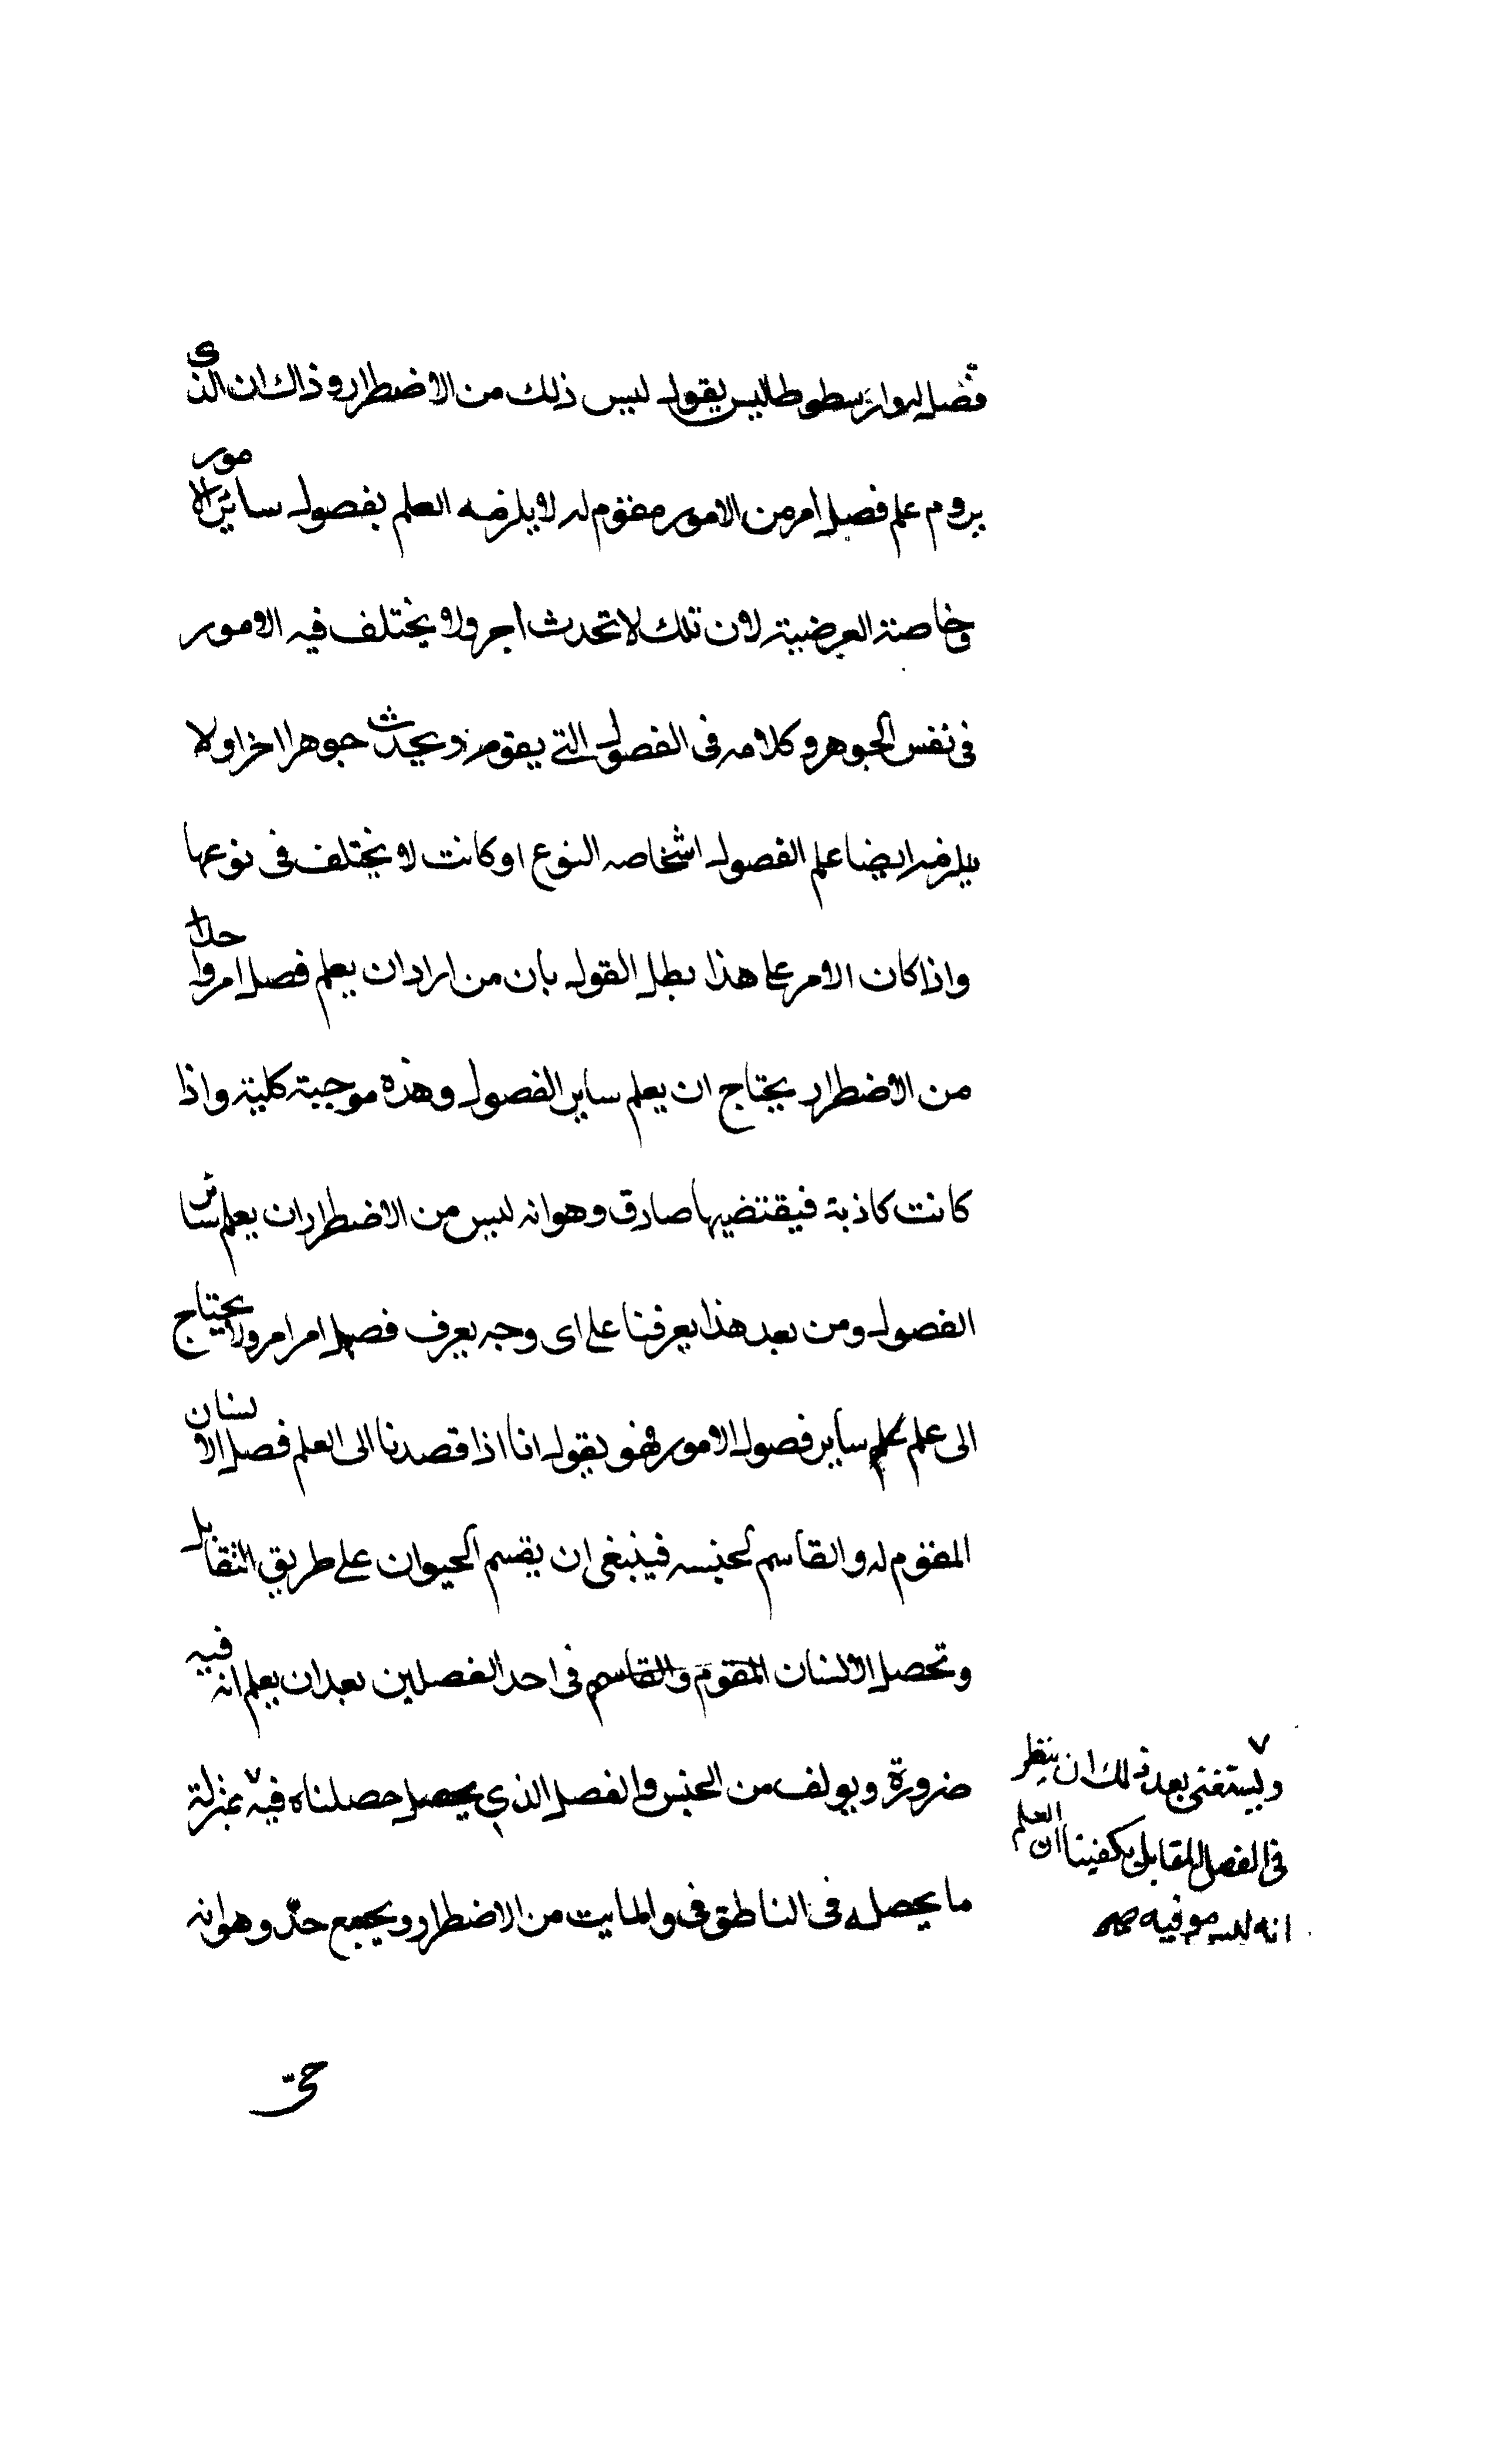 فصله لهوارسطوطاليس يقول ليس ذلك من الاضطرار وذاك ان الذى
يروم علم فصل امر من الامور مقوم له لا يلزمه العلم بفصول سائر الامور
وخاصة العرضية لان تلك لا تحدث اجر ولا يختلف فيه الامور
فى نفس الجوهر وكلامه فى الفصول التى يقوم ويحدث جوهرا اخر اولا
يلزمه ايضا علم الفصول اشخاصه النوع او كانت لا يختلف فى نوعها
واذا كان الامر على هذا بطل القول بان من اراد ان يعلم فصل امر واحد
من الاضطرار يحتاج ان يعلم ساير الفصول وهذه موجبة كلية واذا
كانت كاذبة فيقتضيها صادق وهو انه ليس من الاضطرار ان يعلم سائر
الفصول ومن بعد هذا يعرفنا على اى وجه يعرف فصل امر امر ولا يحتاج
الى علم ساير فصول الامور فهو يقول انا اذا قصدنا الى العلم فصل الانسان
المقوم له والقاسم لجنسه فينبغى ان يقسم الحيوان على طريق التقابل
وتحصل الانسان المقوم والقاسم فى احد الفصلين بعد ان يعلم انه فيه
ضرورة ويولف من الجنس والفصل الذي حصلناه فيه بمنزلة
ما يحصله فى الناطق فى والمايت من الاضطرار ويجمع حدّ وهو انه
ويستغنى بعد ذلك ان ينظر
فى الفصل المقابل يكفينا العلم
انه ليس هو فيه صح
حىّ